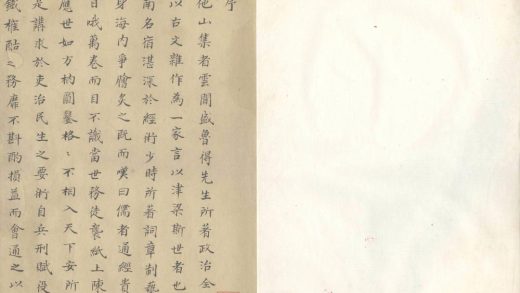 序
他山集者雲間盛魯得先生所著政治全
以古文雜作為一家言以津梁斯世者也
南名宿湛深於經術少時所著詞章制藝
身海內爭膾炙之既而嘆曰儒者通經貴
日哦萬卷而目不識當世務徒襲紙上陳
應世如方枘圓鑿格〻不相入天下安所
是講求於吏治民生之要術自兵刑賦役
鐵榷酤之務靡不斟酌損益而會通之以